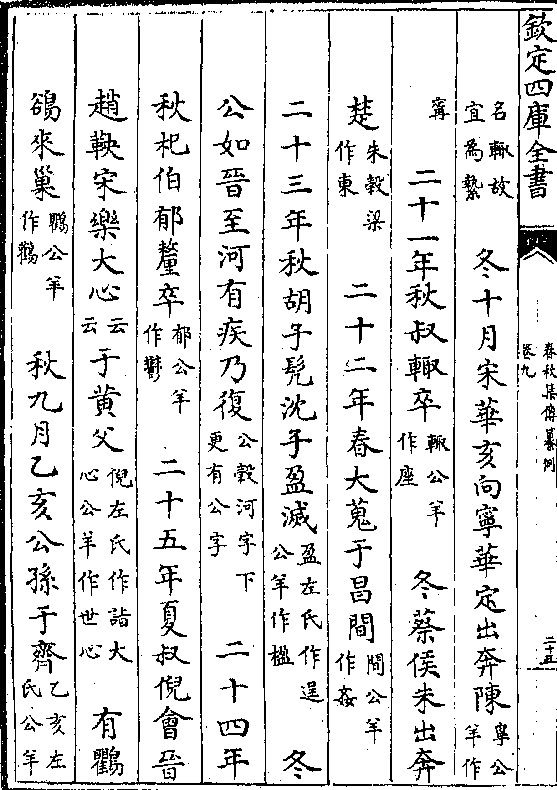 欽定四庫全書
春秋集傳纂例
卷九
二十五
名輒故
宜為縶
冬十月宋華亥向寧華定出奔陳
寧公
羊作
甯
二十一年秋叔輒卒
輒公羊
作座
冬蔡侯朱出奔
楚
朱穀梁
作東
二十二年春大蒐于昌間
間公羊
作姦
二十三年秋胡子髠沈子盈滅
盈左氏作逞
公羊作楹
冬
公如晉至河有疾乃復
公穀河字下
更有公字
二十四年
秋杞伯郁釐卒
郁公羊
作鬱
二十五年夏叔倪會晉
趙鞅宋樂大心
云
云
于黃父
倪左氏作詣大
心公羊作世心
有鸜
鵒來巢
鸜公羊
作鸛
秋九月乙亥公孫于齊
乙亥左
氏公羊